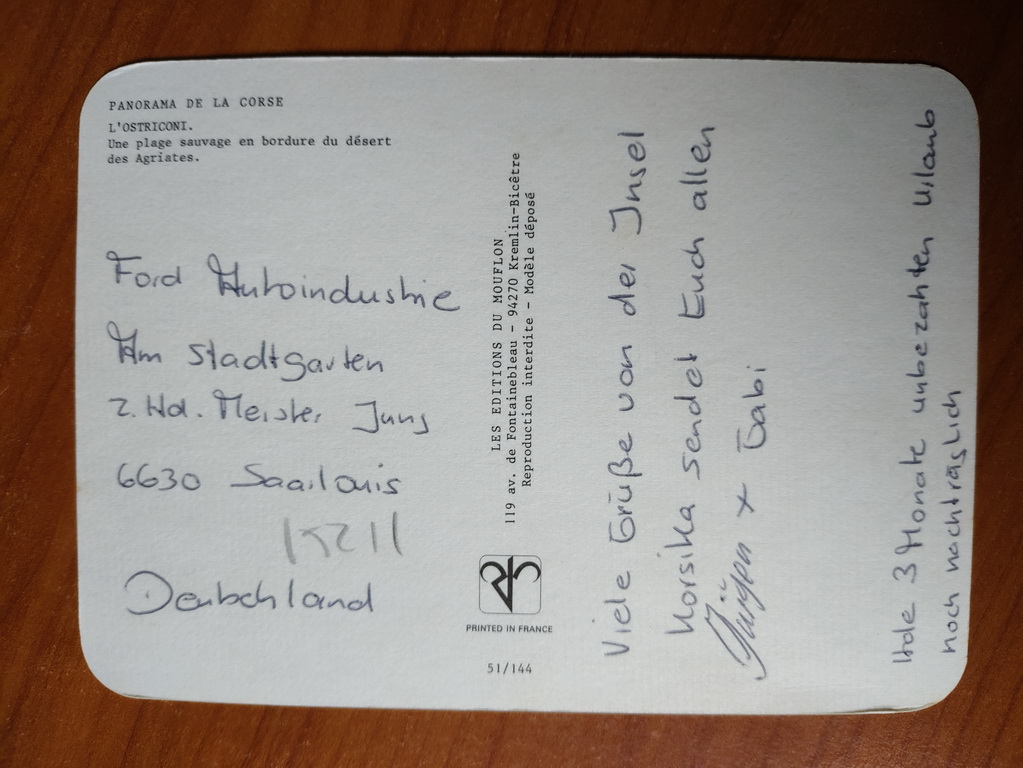 PANORAMA DE LA CORSE
L'OSTRICONI.
Une plage sauvage en bordure du désert
des Agriates.
Ford Autoindustrie
Am Stadtgarten
z. Hd. Meister Jung
6630 Saarlouis
Deutschland
LES EDITIONS DU MOUFLON
119 av. de Fontainebleau - 94270 Kremlin-Bicêtre
Reproduction interdite - Modèle déposé
PRINTED IN FRANCE
51/144
Viele Grüße von der Insel
Korsika sendet Euch allen
Jürgen + Gabi
Hole 3 Monate unbezahten Urlaub
noch nachträglich